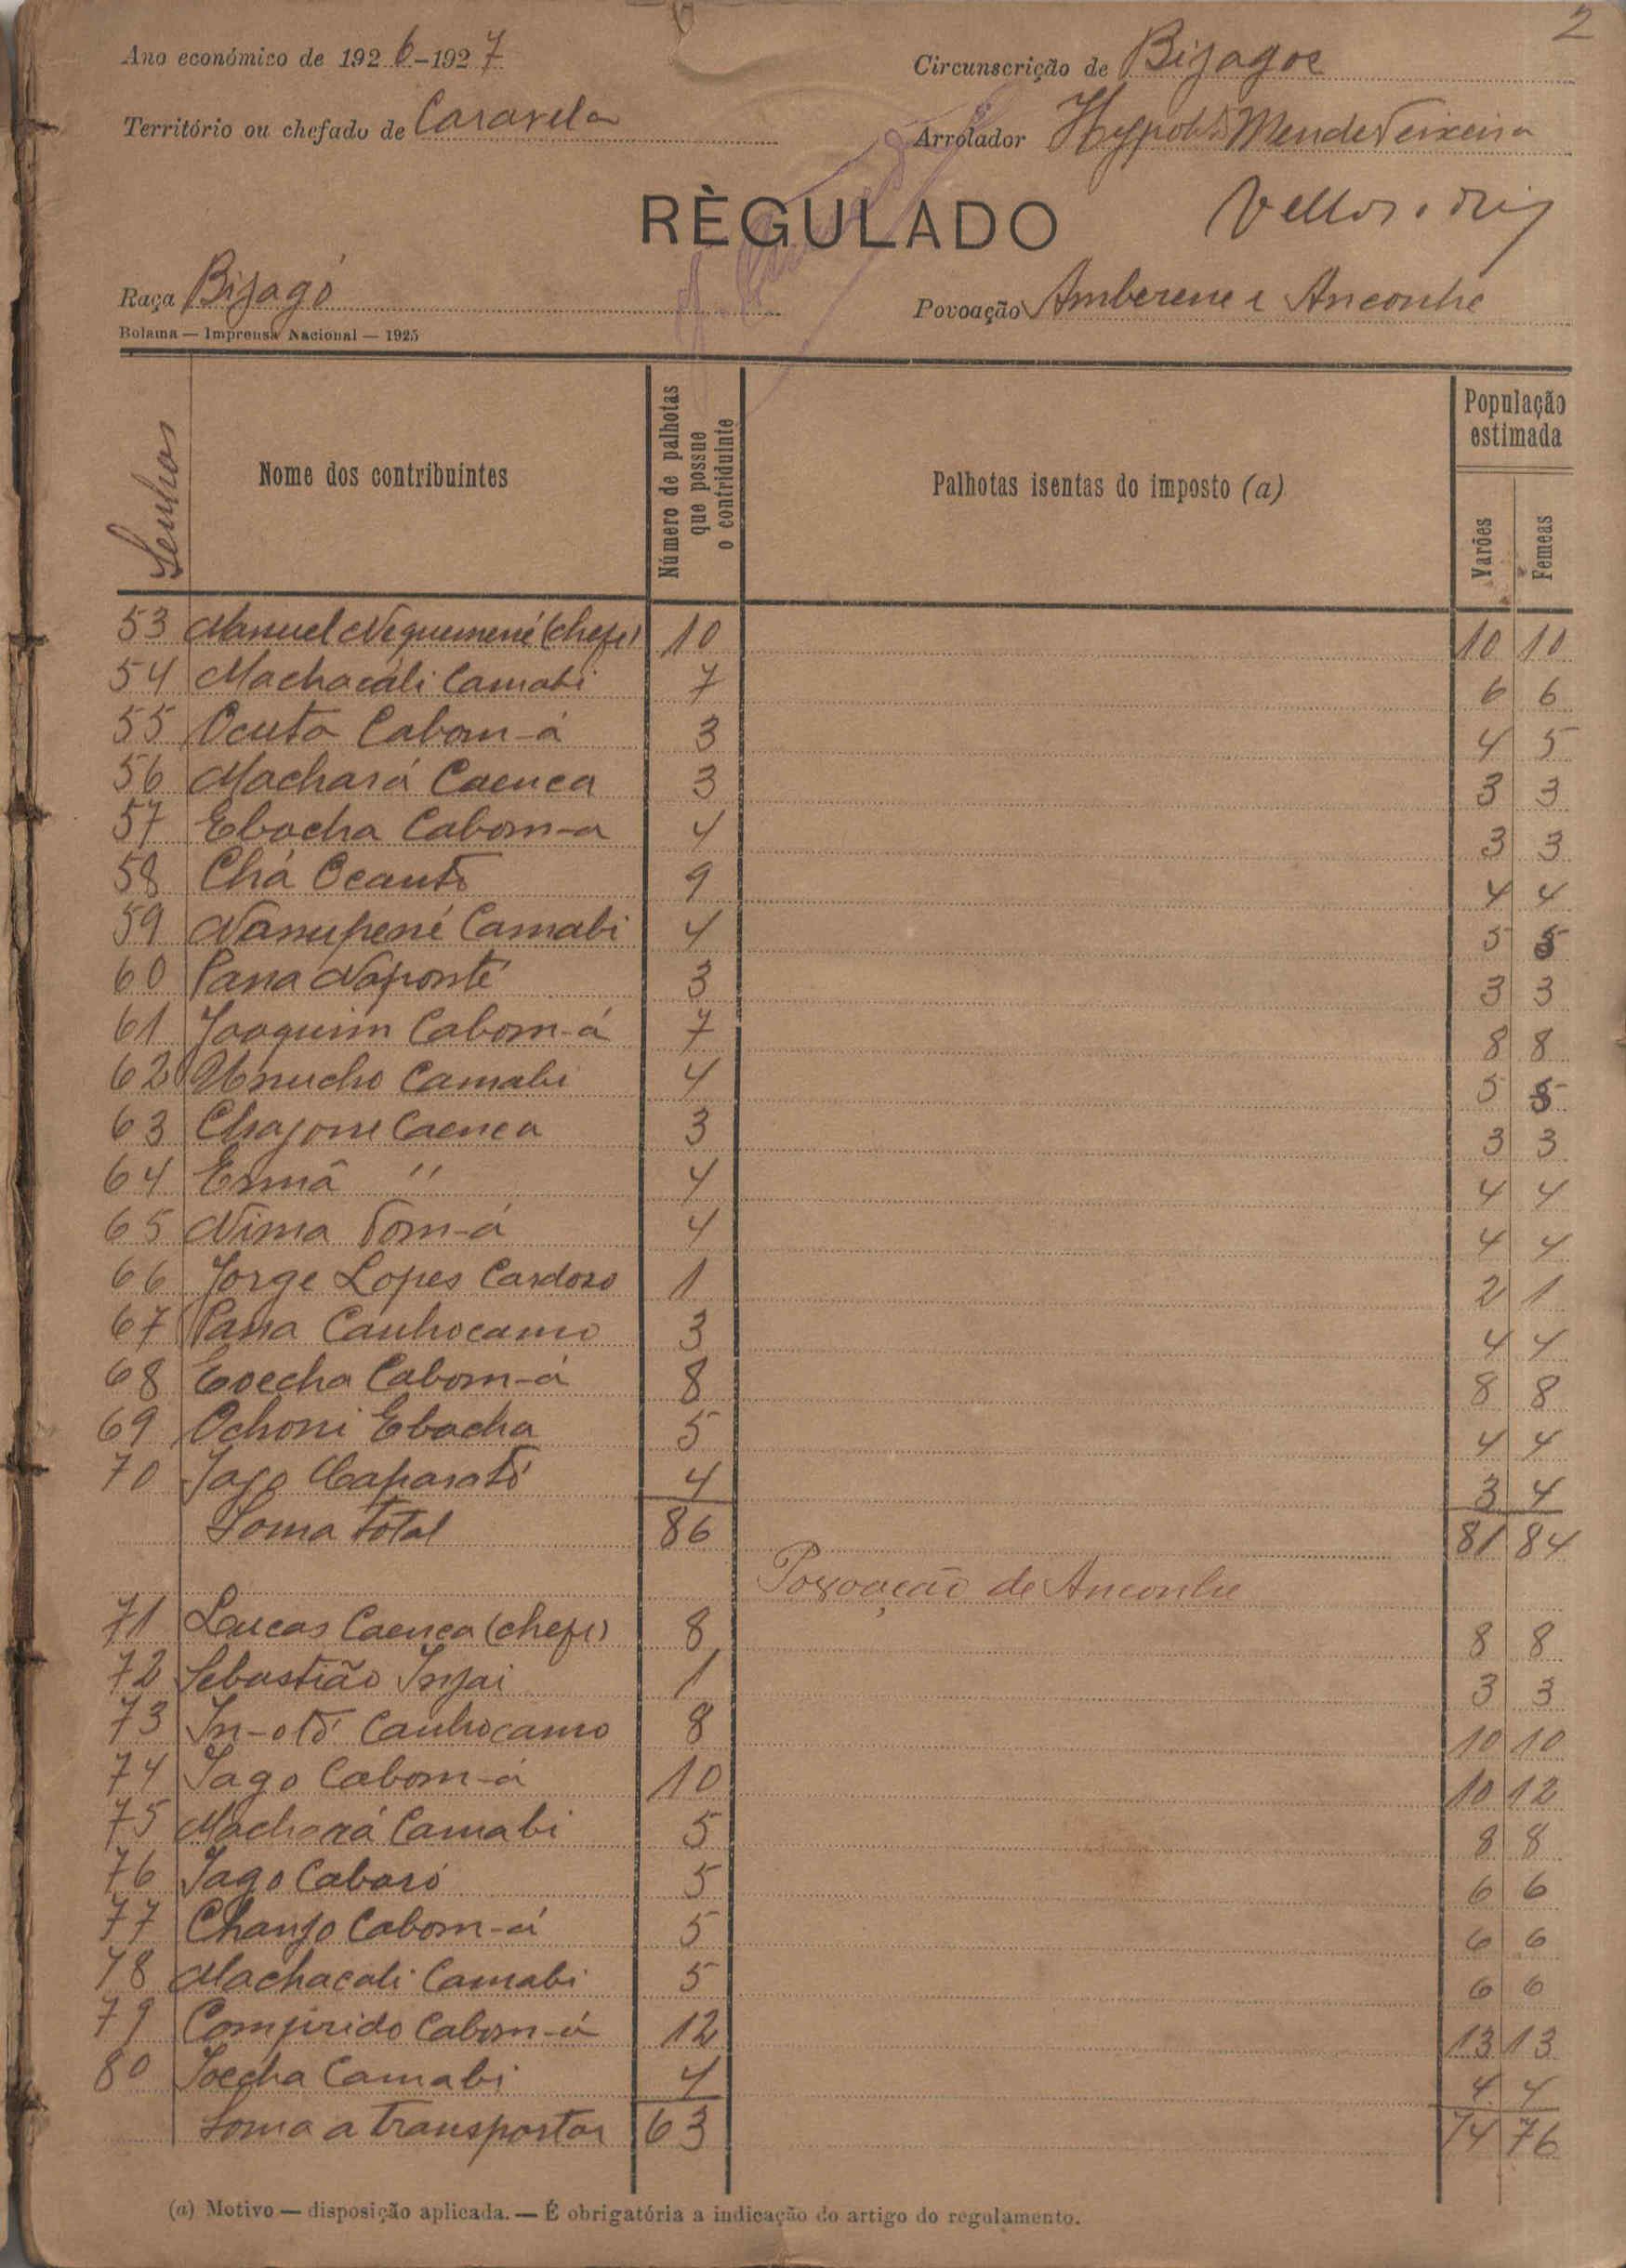 2
Ano económico de 1926-1927
Circunscrição de Bijagos
Território ou chefado de Caravela
Arrolador Hypolito Mende Teixeira
RÈGULADO
Raça Bijagó
Povoação Amberene e Anconhe
Bolama — Imprensa Nacional — 1925
Senhas
Nome dos contribuintes
Número de palhotas que possue o contriduinte
Palhotas isentas do imposto (a)
População estimada
Varões
Femeas
53 Manuel Neguemené (chefe) 10 10 10
54 Machacáli Camabi 7 6 6
55 Ocuto Cabom-á 3 4 5
56 Machará Caenca 3 3 3
57 Ebocha Cabom-a 4 3 3
58 Chá Ocantó 9 4 4
59 Nanupené Camabi 4 5 5
60 Pana Naponté 3 3 3
61 Joaquim Cabom-á 7 8 8
62 Unucho Camabi 4 5 5
63 Chajone Caenca 3 3 3
64 Ermâ " 4 4 4
65 Nima Tom-á 4 4 4
66 Jorge Lopes Cardoso 1 2 1
67 Pana Canhocamo 3 4 4
68 Eoecha Cabom-á 8 8 8
69 Ochoni Ebocha 5 4 4
70 Jago Caparató 4 3 4
Soma total 86 81 84
Povoação de Anconhe
71 Lucas Caenca (chefe) 8 8 8
72 Sebastião Injai 1 3 3
73 In-otó Canhocamo 8 10 10
74 Jago Cabom-á 10 10 12
75 Machorá Camabi 5 8 8
76 Jago Caboró 5 6 6
77 Chanjo Cabom-á 5 6 6
78 Machacali Camabi 5 6 6
79 Comprido Cabom-á 12 13 13
80 Joecha Camabi 4 4 4
Soma a transportar 63 74 76
(a) Motivo — disposição aplicada. — É obrigatória a indicação do artigo do regulamento.